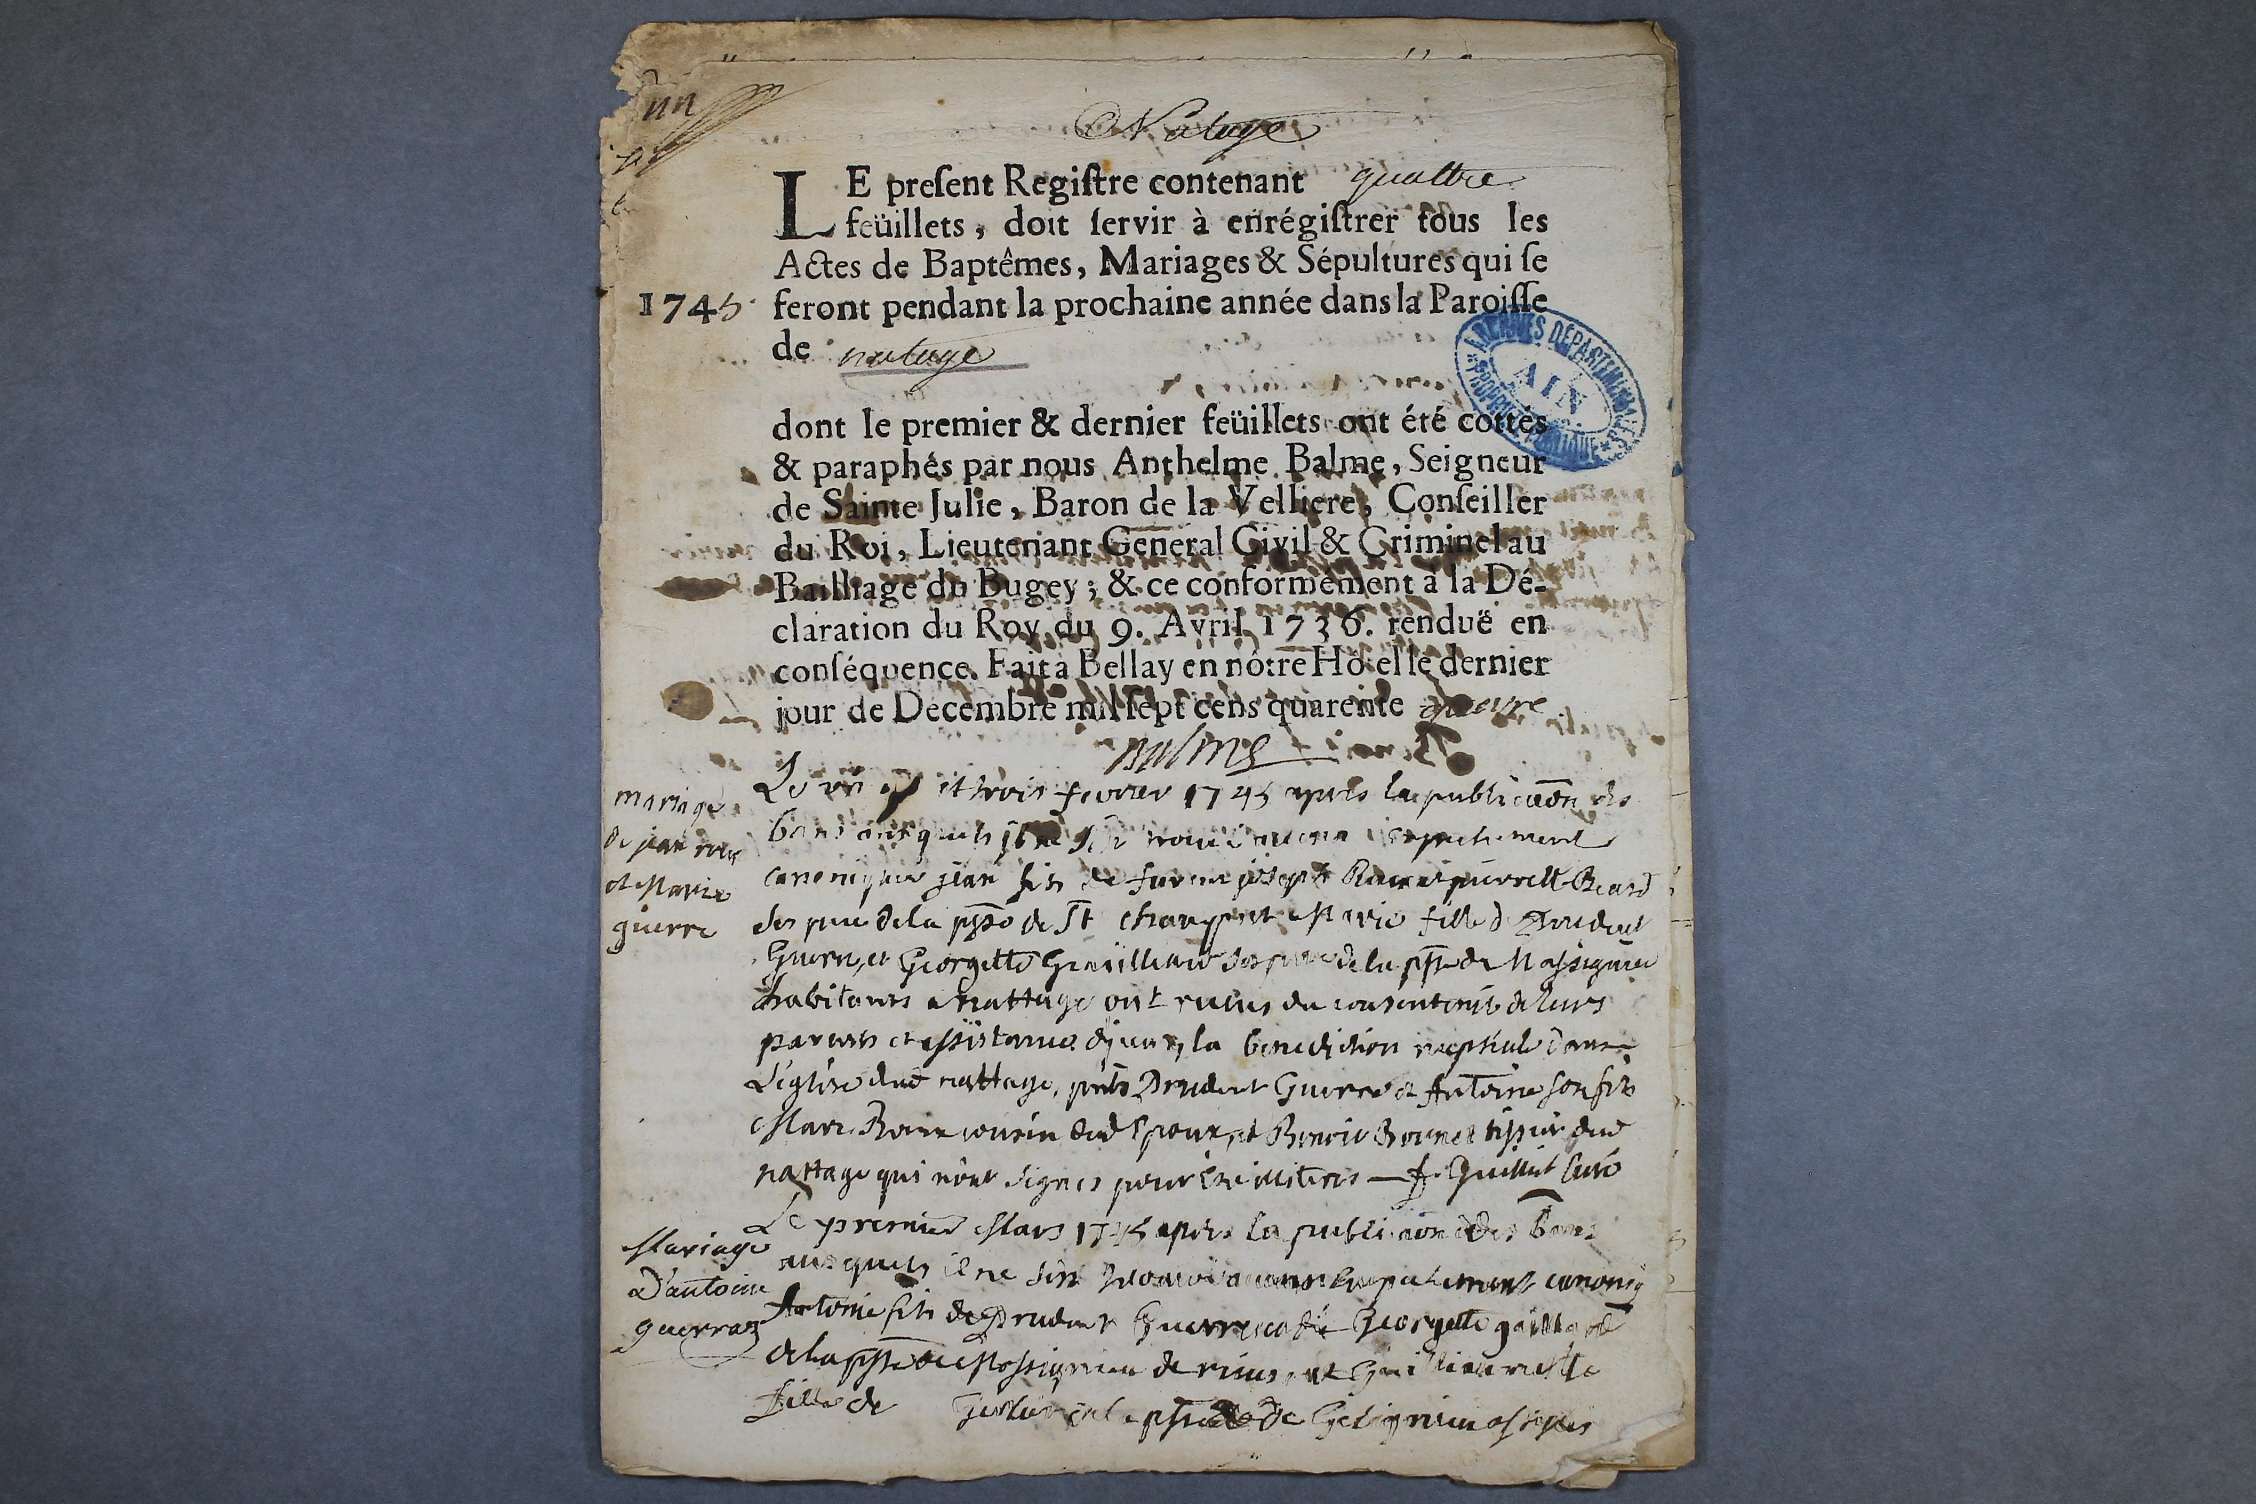 un
Natage
LE preſent Regiſtre contenant quattre
feüillets, doit ſervir à enrégiſtrer tous les
Actes de Baptêmes, Mariages & Sépultures qui ſe
1745 feront pendant la prochaine année dans la Paroiſſe
de natage
ARCHIVES DÉPARTEMENTALES
AIN
PROPRIÉTÉ PUBLIQUE
dont le premier & dernier feüillets ont été cottés
& paraphés par nous Anthelme Balme, Seigneur
de Sainte Julie, Baron de la Velliere, Conſeiller
du Roi, Lieutenant General Civil & Criminel au
Bailliage du Bugey; & ce conformément à la Dé-
claration du Roy du 9. Avril 1736. renduë en
conſéquence. Fait à Bellay en nôtre Hôtel le dernier
jour de Décembre mil ſept cens quarente quatre
Balme
mariage
de jean roux
et Marie
guerre
Le et trois fevrier 1745 apres la publicaōn des
bans ausquels il ne trouvé aucun empechement
canonique jean fils de joseph et pierrette
de la psse de St champ et Marie fille de Prudent
Guerre, et Georgette de la psse de Massignieu
habitants a nattage ont recus du consentemt de leurs
parents et assistance la benediction nuptiale dans
L'église dud nattage, pnts Prudent Guerre et Antoine son fils
Marc cousin dud Epoux, et Benoit tissier dud
nattage qui n'ont signes pour être illiteres Guillet Curé
Mariage
d'antoine
guerraz
Le premier Mars 1745 apres la publicaōn des bans
ausquels il ne s'est trouvé aucun empechement canoniq
Antoine fils de Prudent Guerre et de Georgette
de la psse de Massignieu de rives, et
fille de de la psse de